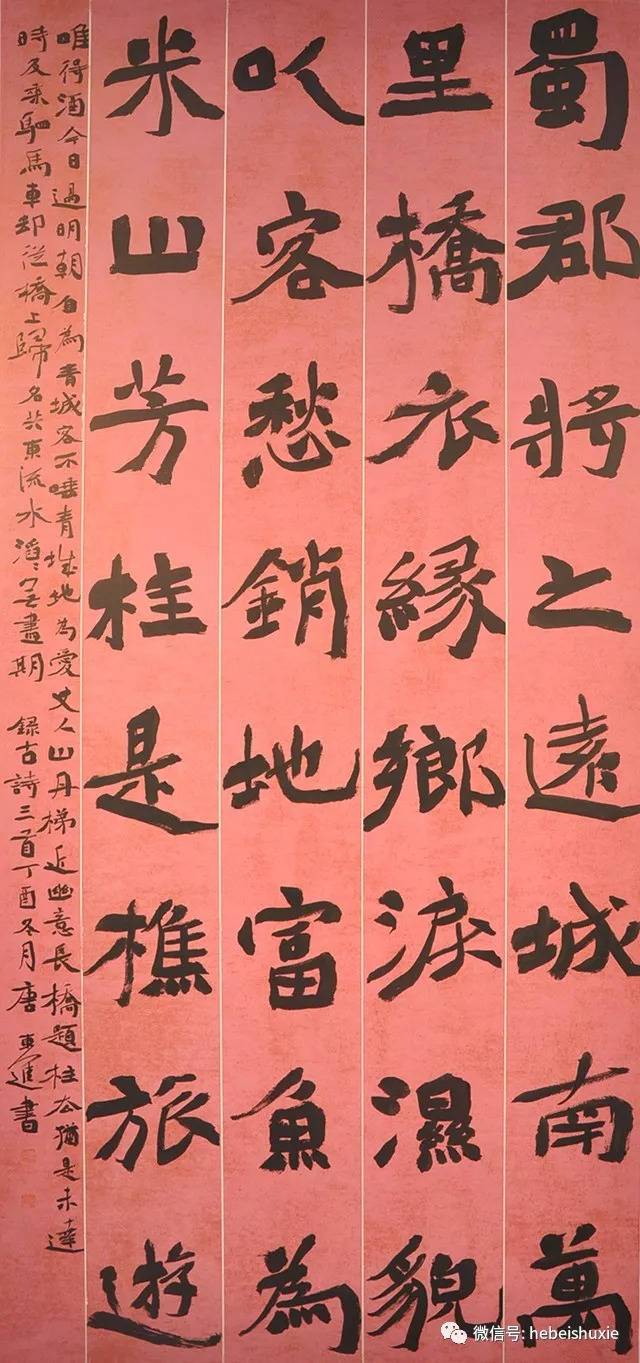 蜀郡將之遠城南萬
里橋衣緣鄉淚濕貌
以客愁銷地富魚為
米山芳桂是樵旅遊
唯得酒今日過明朝自為青城客不唾青城地為愛丈人山丹梯近幽意長橋題柱去猶是未達
時及乘駟馬車却從橋上歸名共東流水滔〻无盡期 録古詩三首丁酉冬月唐東進書
微信号: hebeishuxie